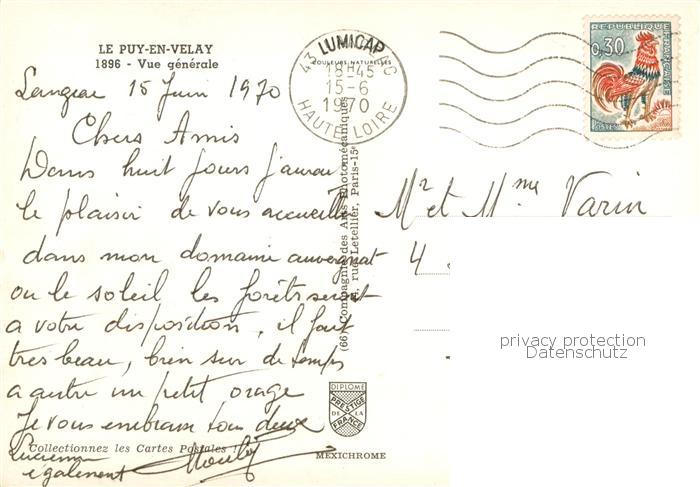 LE PUY-EN-VELAY
1896 - Vue générale
LUMICAP
COULEURS NATURELLES
43
18H45
15-6
1970
HAUTE LOIRE
0,30
REPUBLIQUE FRANCAISE
POSTES
Langeac 15 Juin 1970
Chers Amis
Dans huit jours j'aurai
le plaisir de vous accueillir
dans mon domaine auvergnat
ou le soleil les forêts seront
a votre disposition, il fait
tres beau, bien sur de temps
a autre un petit orage
Je vous embrasse tous deux
Lucienne
également
Collectionnez les Cartes Postales !
(66) Compagnie des Arts Photomécaniques
rue Letellier, Paris-15e
Mr et Mme Varin
4
privacy protection
Datenschutz
DIPLOME
PRESTIGE
DE LA
FRANCE
MEXICHROME